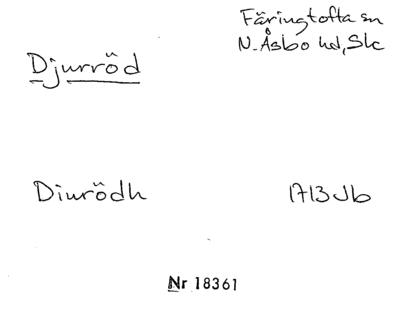 Färingtofta sn
N. Åsbo hd, Sk
Djurröd
Diurödh 1713 Jb
Nr 18361